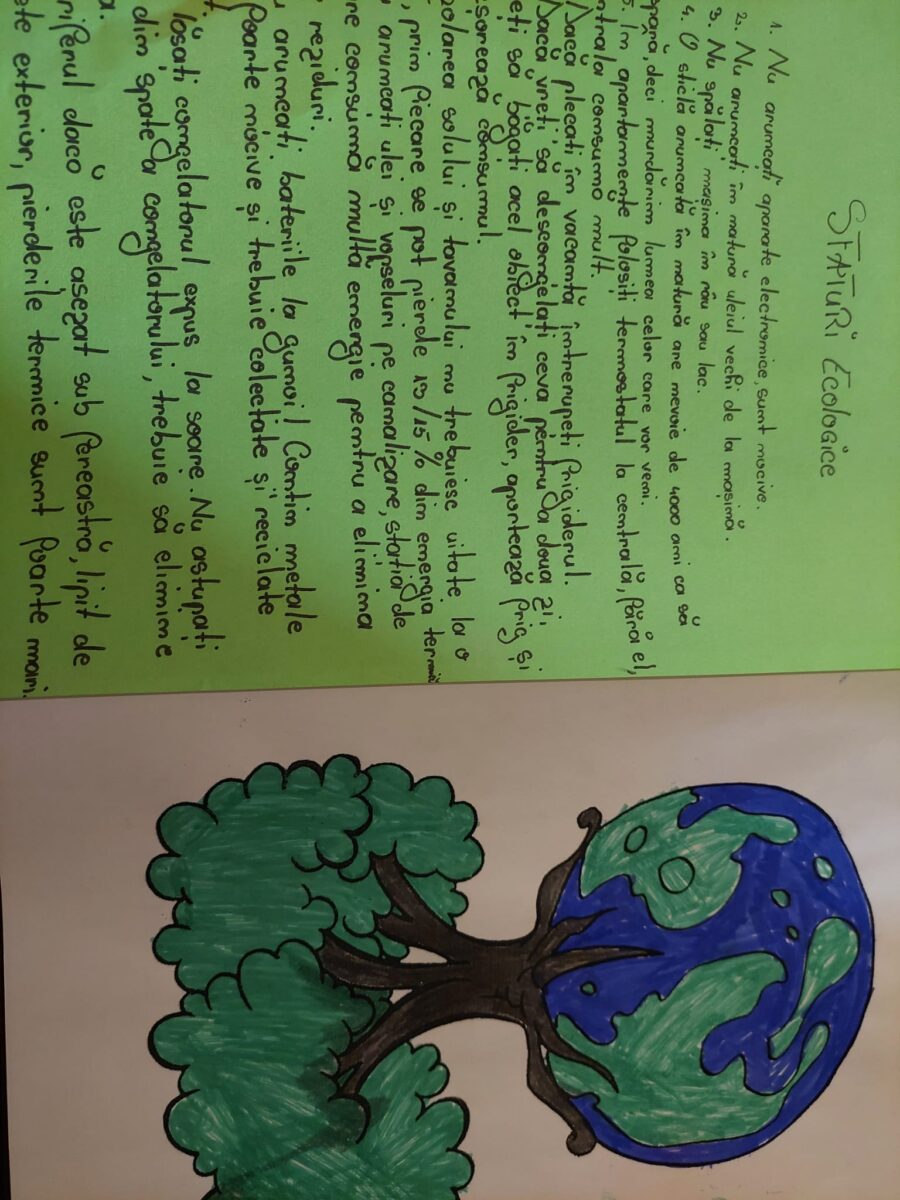 SFATURi Ecologice
1. Nu aruncati aparate electronice, sunt nocive.
2. Nu aruncați în natură uleiul vechi de la mașină.
3. Nu spălați mașina în râu sau lac.
4. O sticlă aruncată în natură are nevoie de 4000 ani ca să
spară, deci murdărim lumea celor care vor veni.
5. În apartamente folosiți termostatul la centrală, fără el,
ntrala consumă mult.
Dacă plecați în vacanță întrerupeți frigiderul.
Dacă vreți să descongelați ceva pentru a doua zi,
eți să băgați acel obiect în frigider, aportează frig și
șoreaza consumul.
olarea solului și tavanului nu trebuiesc uitate, la o
, prin fiecare se pot pierde 10/15% din energia termică
aruncati ulei și vopseluri pe canalizare, stația de
re consumă multă energie pentru a elimina
reziduri.
aruncați bateriile la gunoi! Contin metale
foarte nocive și trebuie colectate și reciclate
t. lăsați congelatorul expus la soare. Nu astupați
din spate a congelatorului, trebuie să elimine
a.
riferul dacă este așezat sub fereastră, lipit de
te exterior, pierderile termice sunt foarte mari.